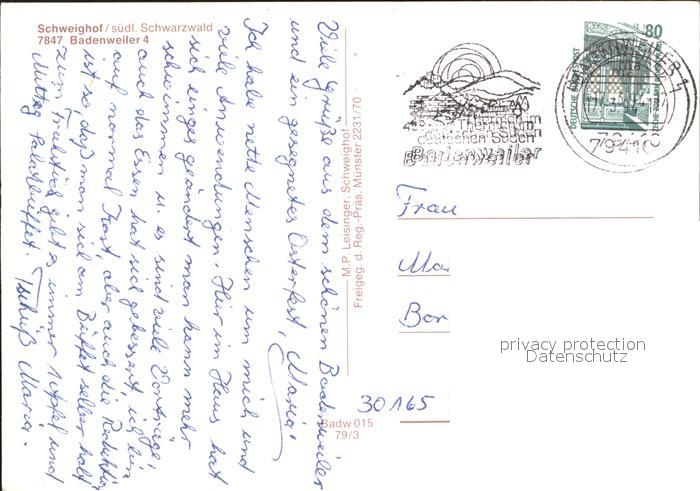 Schweighof / südl. Schwarzwald
7847 Badenweiler 4
Viele Grüße aus dem schönen Badenweiler
und ein gesegnetes Osterfest, Maria.
Ich habe nette Menschen um mich und
viele Anwendungen. Hier im Haus hat
sich einiges geändert man kann mehr
schwimmen u. es sind viele Vorträge,
auch das Essen hat sich gebessert, ich bin
auf normal Kost, aber auch die Reduktion
ist so, daß man sich am Büffet selber holt
zum Frühstück gibt es immer 1 Apfel und
Mittag Salatbüffet. Tschüß Maria.
M.P. Leisinger, Schweighof
Freigeg. d. Reg.-Präs. Münster 2231/70
Badw 015
79/3
DEUTSCHE BUNDESPOST
80
Thermen im
deutschen Süden
Badenweiler
BADENWEILER 1
79410
Frau
Ma
Bor
30165
privacy protection
Datenschutz